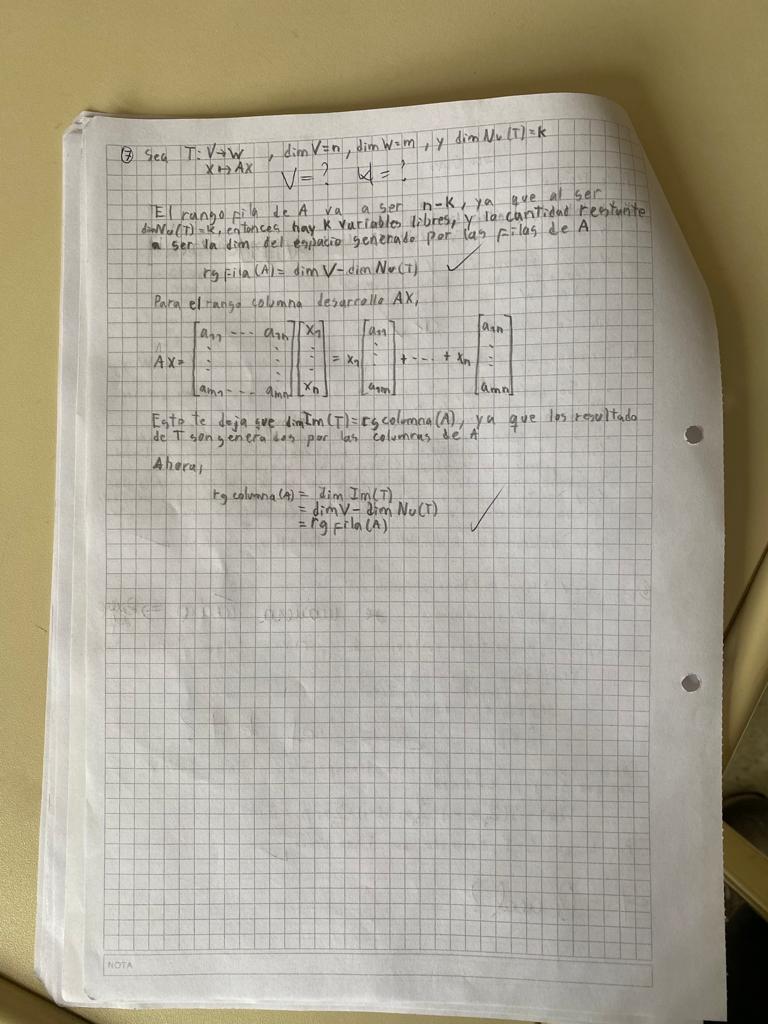 ⑦ Sea T: V→W , dim V=n, dim W=m, y dim Nu(T)=k
x↦Ax
V=? W=?
El rango fila de A va a ser n-k, ya que al ser
dimNu(T)=k, entonces hay k variables libres, y la cantidad restante
a ser la dim del espacio generado por las filas de A
rg fila (A) = dim V - dim Nu(T) ✓
Para el rango columna desarrollo AX,
AX= [a11 --- a1n ⋮ ⋮ am1 --- amn] [x1 ⋮ xn] = x1 [a11 ⋮ a1m] + --- + xn [a1n ⋮ amn]
Esto te deja que dim Im(T) = rg columna(A), ya que los resultado
de T son generados por las columnas de A
Ahora,
rg columna (A) = dim Im(T)
= dim V - dim Nu(T)
= rg fila (A) ✓
NOTA